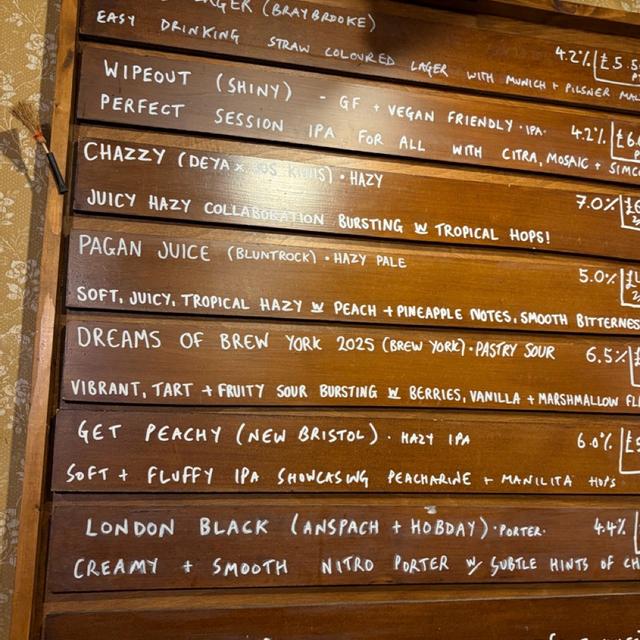 LAGER (BRAYBROOKE)
EASY DRINKING STRAW COLOURED LAGER WITH MUNICH + PILSNER
4.2% £5.5
WIPEOUT (SHINY) - GF + VEGAN FRIENDLY · IPA· 4.2%
PERFECT SESSION IPA FOR ALL WITH CITRA, MOSAIC +
CHAZZY (DEYA x · HAZY 7.0%
JUICY HAZY COLLABORATION BURSTING W TROPICAL HOPS!
PAGAN JUICE (BLUNTROCK) · HAZY PALE 5.0%
SOFT, JUICY, TROPICAL HAZY W PEACH + PINEAPPLE NOTES, SMOOTH BITTERNESS
DREAMS OF BREW YORK 2025 (BREW YORK) · PASTRY SOUR 6.5%
VIBRANT, TART + FRUITY SOUR BURSTING W BERRIES, VANILLA + MARSHMALLOW
GET PEACHY (NEW BRISTOL) · HAZY IPA 6.0%
SOFT + FLUFFY IPA SHOWCASING PEACHARINE + MANILITA HOPS
LONDON BLACK (ANSPACH + HOBDAY) · PORTER· 4.4%
CREAMY + SMOOTH NITRO PORTER W/ SUBTLE HINTS OF